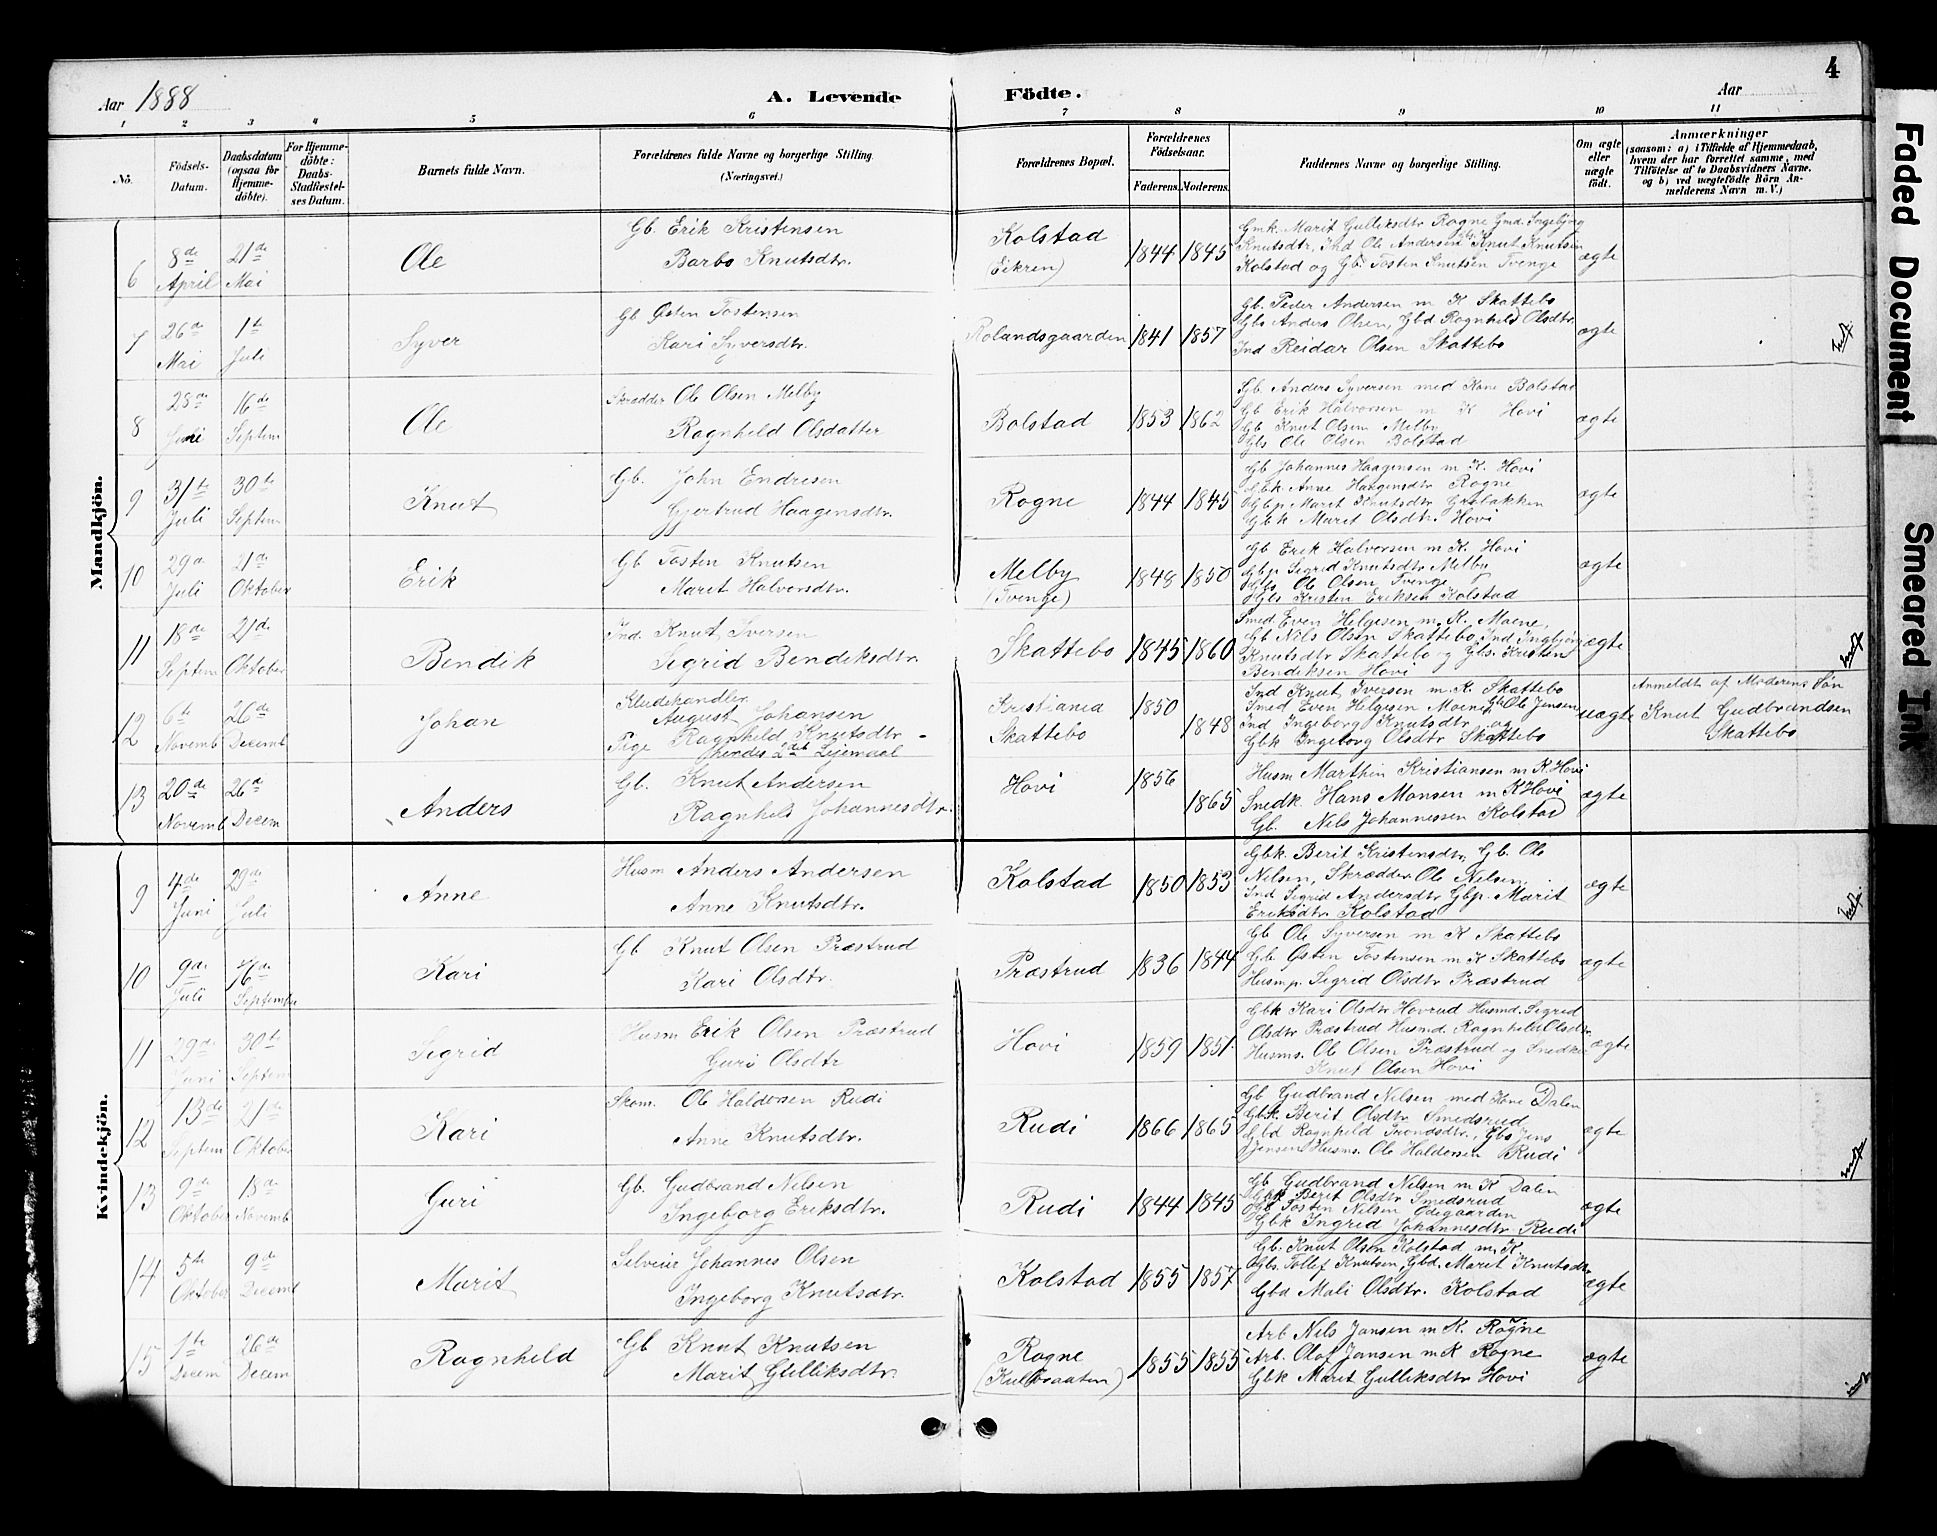 4
Aar 1888
A. Levende Födte.
Aar
1 2 3 4 5 6 7 8 9 10 11
Nö.
Födsels-Datum.
Daabsdatum (ogsaa for Hjemme-döbte).
For Hjemme-döbte: Daabs-Stadfæstel-ses Datum.
Barnets fulde Navn.
Forældrenes fulde Navne og borgerlige Stilling. (Næringsvei.)
Forældrenes Bopæl.
Forældrenes Födselsaar.
Faderens. Moderens.
Faddernes Navne og borgerlige Stilling.
Om ægte eller uægte født.
Anmærkninger
(saasom: a) i Tilfælde af Hjemmedaab, hvem der har forrettet samme, med Tilföielse af to Daabsvidners Navne, og b) ved uægtefödte Börn An-melderens Navn m.V.)
Mandkjön.
6 8de April 21de Mai Ole
Gb. Erik Kristensen
Barbo Knutsdtr.
Kolstad
(Eikren)
1844 1845
Gmk. Marit Gulliksdtr Rogne Gmd. Ingebjørg
Knutsdtr, Ind Ole Andersen Gbs. Knut Knutsen
Kolstad og Gb. Tosten Knutsen Tvenge
ægte
7 26de Mai 1te Juli Syver
Gb Østen Tostensen
Kari Syversdtr.
Rolandsgaarden 1841 1857
Gb. Peder Andersen m K Skattebo
Gbs Anders Olsen, Gbd Ragnhild Olsdtr.
Ind Reidar Olsen Skattebo
ægte
8 28de Juni 16de Septem Ole
Skrædder Ole Olsen Melby
Ragnhild Olsdatter
Bolstad 1853 1862
Gb. Anders Syversen med Kone Bolstad
Gb Erik Halvorsen m K Hovi
Gb Knut Olsen Melby
Gbs Ole Olsen Bolstad
ægte
9 31te Juli 30te Septem Knut
Gb. John Endresen
Gjertrud Haagensdtr.
Rogne 1844 1845
Gb Johannes Haagensen m K. Hovi
Gbk Anne Haagensdtr Rogne
Gbp. Marit Knutsdtr Grabakken
Gbk Marit Olsdtr. Hovi
ægte
10 29de Juli 21de Oktober Erik
Gb Tosten Knutsen
Marit Halvorsdtr.
Melby
(Tvenge)
1848 1850
Gb Erik Halvorsen m K. Hovi
Gbp Sigrid Knutsdtr Melby
Gbs Ole Olsen Tvenge
Gbs Kristen Eriksen Kolstad
ægte
11 18de Septem 21de Oktober Bendik
Ind. Knut Iversen
Sigrid Bendiksdtr.
Skattebo 1845 1860
Smed Even Helgesen m. K. Moene,
Gb Nils Olsen Skattebo, Ind Ingbjørg
Knutsdtr Skattebo og Gbs. Kristen
Bendiksen Hovi
ægte
12 6te Novemb 26de Decemb Johan
Kludehandler
August Johansen
Pige Ragnhild Knutsdtr
hendes 2det Lejemaal
Kristiania
Skattebo
1850 1848
Ind Knut Iversen m. K. Skattebo
Smed Even Helgesen Moene, Gb Ole Jensen
Ind Ingeborg Knutsdtr og
Gbk Ingeborg Olsdtr Skattebo
uægte
Anmeldt af Moderens Søn
Knut Gudbrandsen
Skattebo
13 20de Novemb 26de Decem Anders
Gb. Knut Andersen
Ragnhild Johannesdtr.
Hovi 1856 1865
Husm Marthin Kristiansen m K. Hovi
Snedk Hans Monsen m K Hovi
Gb. Nils Johannessen Kolstad
ægte
Kvindekjön.
9 4de Juni 29de Juli Anne
Husm Anders Andersen
Anne Knutsdtr.
Kolstad 1850 1853
Gbk. Berit Kristensdtr, Gb. Ole
Nilsen, Skrædder Ole Nilsen,
Ind Sigrid Andersdtr Gbp. Marit
Eriksdtr Kolstad
ægte
10 9de Juli 16de September Kari
Gb Knut Olsen Præstrud
Kari Olsdtr.
Præstrud 1836 1844
Gb Ole Syversen m K Skattebo
Gb Østen Tostensen m K Skattebo
Husmp. Sigrid Olsdtr Præstrud
ægte
11 29de Juni 30te Septem Sigrid
Husm Erik Olsen Præstrud
Guri Olsdtr
Hovi 1859 1851.
Gbk Kari Olsdtr Hovrud Husmd. Sigrid
Olsdtr Præstrud Husmd. Ragnhild Olsdtr.
Husms. Ole Olsen Præstrud og Snedker
Knut Olsen Hovi
ægte
12 13de Septem 21de Oktober Kari
Skom. Ole Haldorsen Rudi
Anne Knutsdtr.
Rudi 1866 1865
Gb Gudbrand Nilsen med Kone Dalen
Gbk. Berit Olsdtr Smedsrud
Gbd Ragnhild Trondsdtr., Gbs Jens
Jensen Husms. Ole Haldorsen Rudi
ægte
13 9de Oktober 18de Novemb Guri
Gb. Gudbrand Nilsen
Ingeborg Eriksdtr.
Rudi 1844 1845
Gb Gudbrand Nilsen m K Dalen
Gbk Berit Olsdtr Smedsrud
Gb Tosten Nilsen Ødegaarden
Gbk Ingrid Johannesdtr Rudi
ægte
14 5te Oktober 9de Decemb Marit
Selveier Johannes Olsen
Ingeborg Knutsdtr.
Kolstad 1855 1857
Gb. Knut Olsen Kolstad m. K.
Gbs. Tollef Knutsen, Gbd. Marit Knutsdtr
Gbd Mali Olsdtr. Kolstad
ægte
15 1te Decem 26de Decem Ragnheld
Gb Knut Knutsen
Marit Gulliksdtr.
Rogne
1855 1855
Arb Nils Jansen m K. Rogne
Arb. Olof Jansen m K Rogne
Gbk Marit Gulliksdtr Hovi
ægte
Faded Document
Smeared Ink